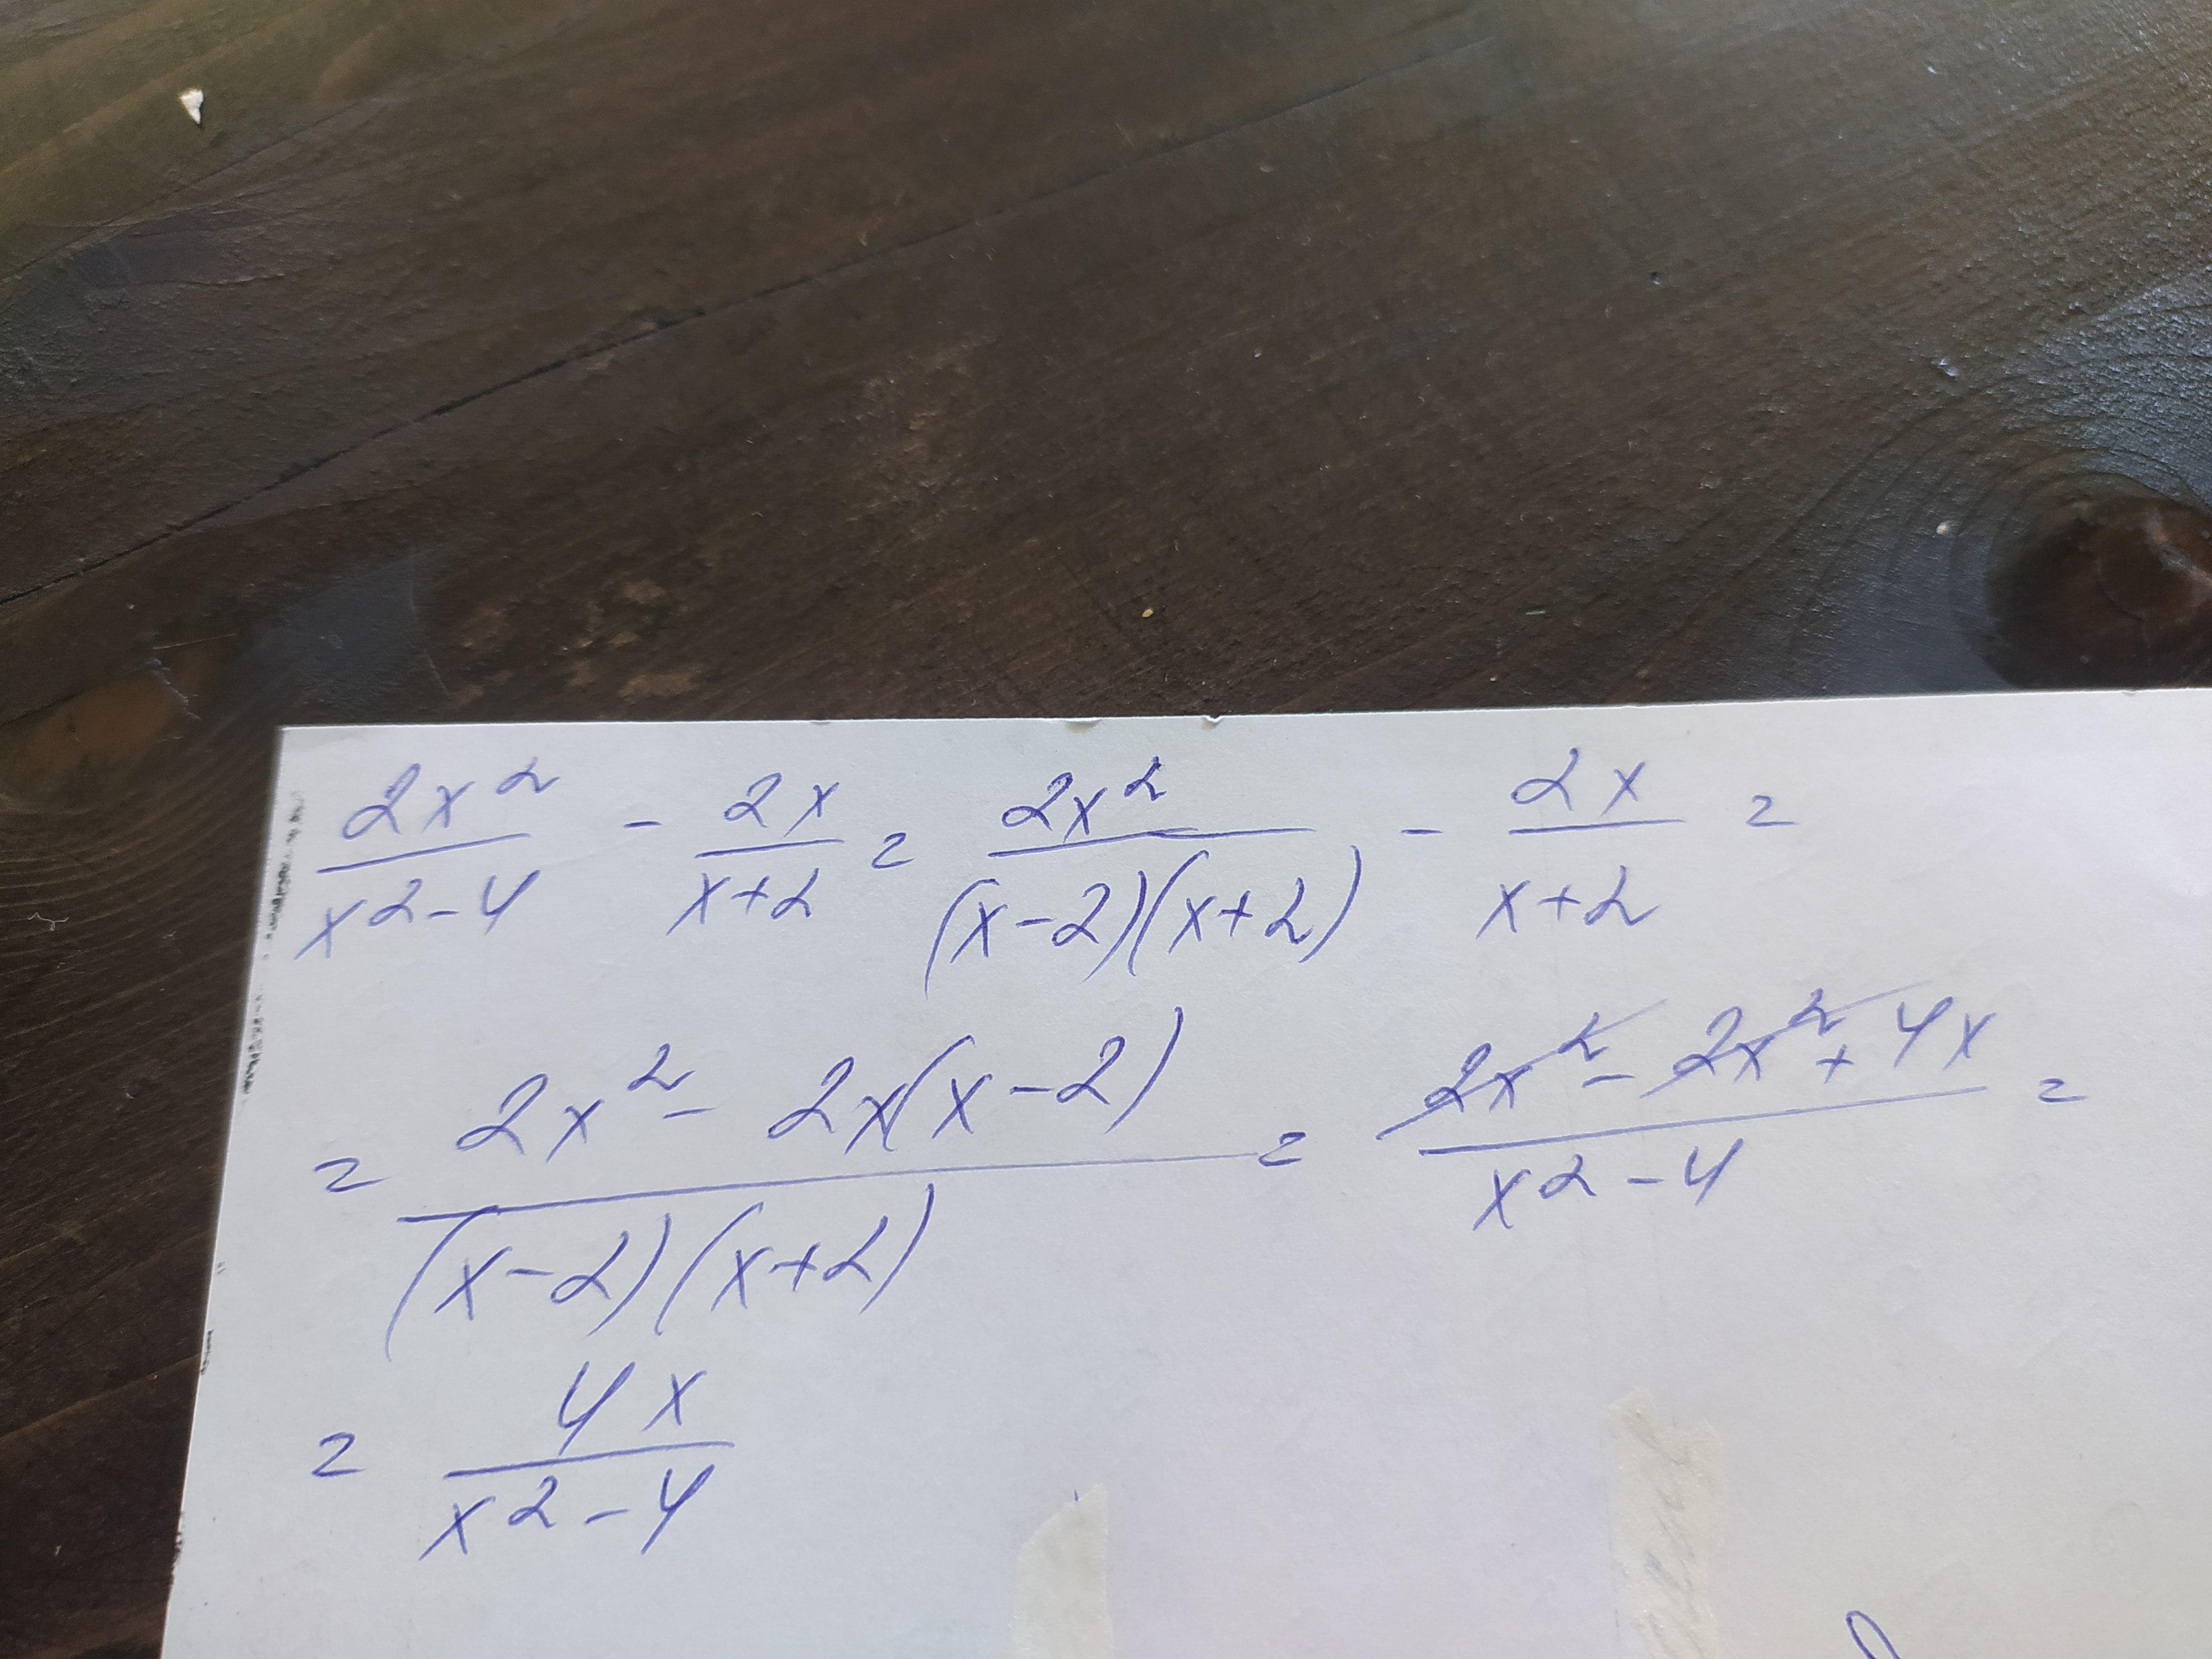 2x²/(x²-4) - 2x/(x+2) = 2x²/((x-2)(x+2)) - 2x/(x+2) =
= (2x² - 2x(x-2))/((x-2)(x+2)) = (2x² - 2x² + 4x)/(x²-4) =
= 4x/(x²-4)